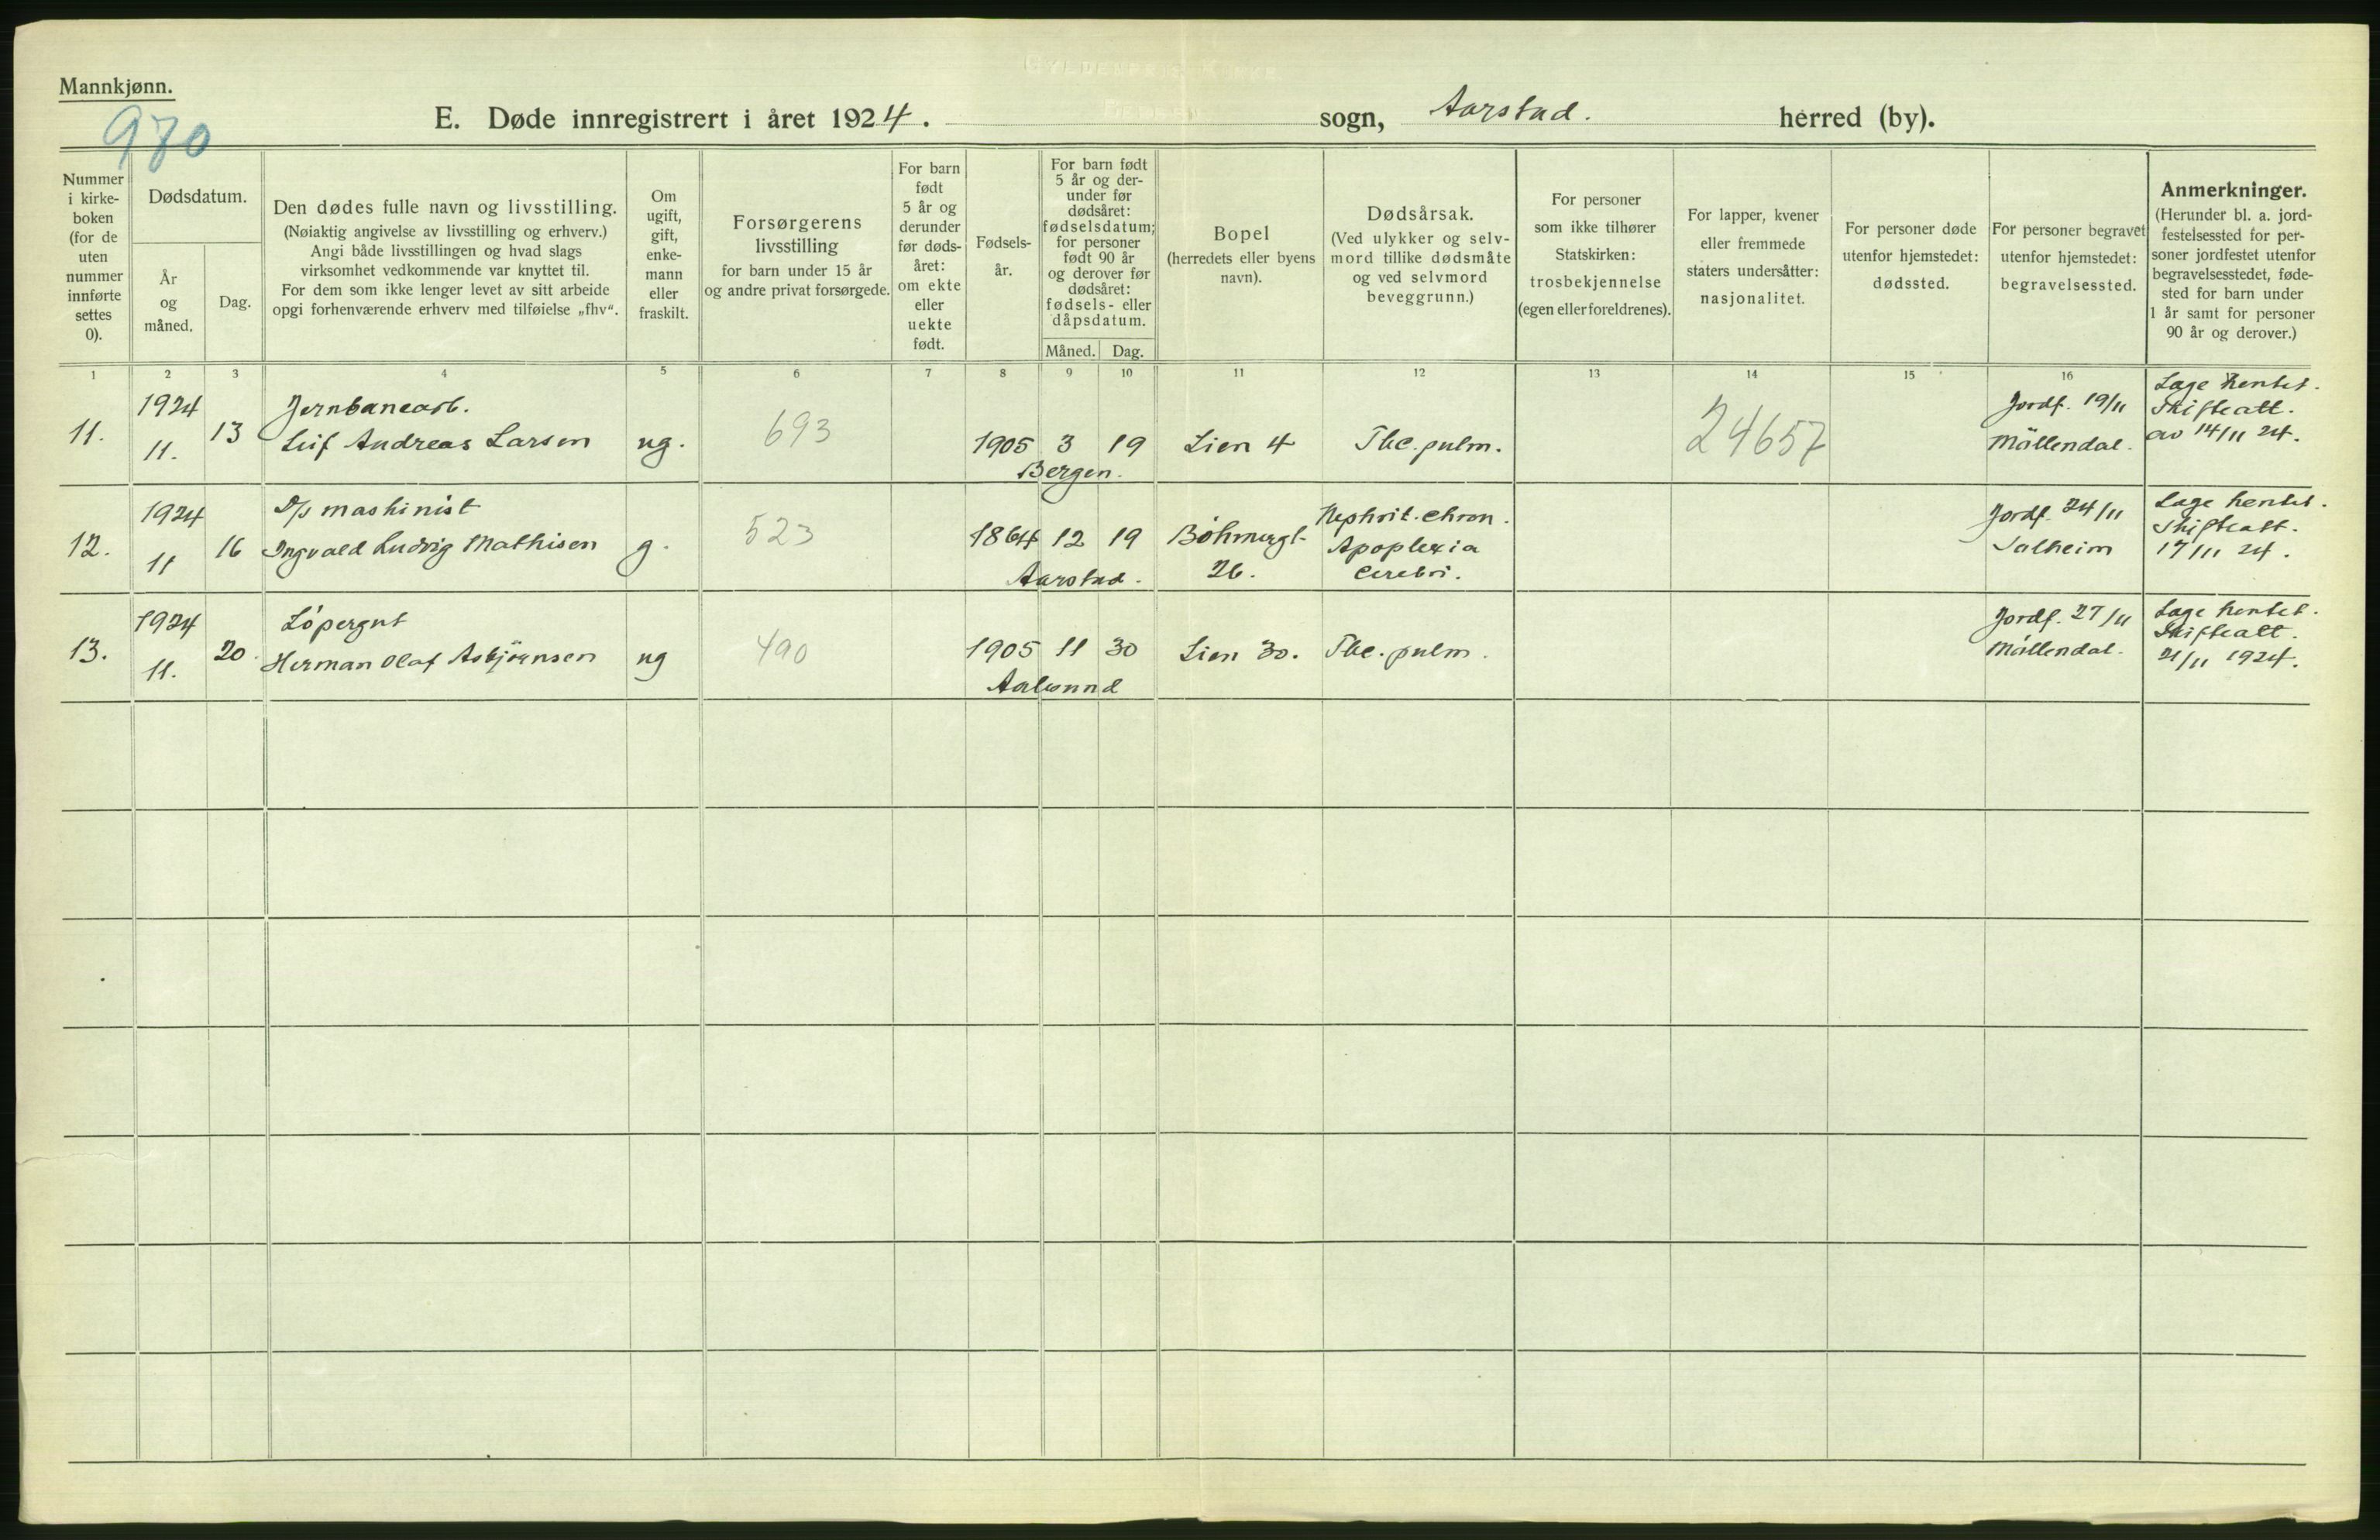 Mannkjønn.
970
E. Døde innregistrert i året 1924. sogn, Aarstad. herred (by).
Nummer
i kirke-
boken
(for de
uten
nummer
innførte
settes
0).
Dødsdatum.
År
og
måned.
Dag.
Den dødes fulle navn og livsstilling.
(Nøiaktig angivelse av livsstilling og erhverv.)
Angi både livsstillingen og hvad slags
virksomhet vedkommende var knyttet til.
For dem som ikke lenger levet av sitt arbeide
opgi forhenværende erhverv med tilføielse „fhv“.
Om
ugift,
gift,
enke-
mann
eller
fraskilt.
Forsørgerens
livsstilling
for barn under 15 år
og andre privat forsørgede.
For barn
født
5 år og
derunder
før døds-
året:
om ekte
eller
uekte
født.
Fødsels-
år.
For barn født
5 år og der-
under før
dødsåret:
fødselsdatum;
for personer
født 90 år
og derover før
dødsåret:
fødsels- eller
dåpsdatum.
Måned. Dag.
Bopel
(herredets eller byens
navn).
Dødsårsak.
(Ved ulykker og selv-
mord tillike dødsmåte
og ved selvmord
beveggrunn.)
For personer
som ikke tilhører
Statskirken:
trosbekjennelse
(egen eller foreldrenes).
For lapper, kvener
eller fremmede
staters undersåtter:
nasjonalitet.
For personer døde
utenfor hjemstedet:
dødssted.
For personer begravet
utenfor hjemstedet:
begravelsessted.
Anmerkninger.
(Herunder bl. a. jord-
festelsessted for per-
soner jordfestet utenfor
begravelsesstedet, føde-
sted for barn under
1 år samt for personer
90 år og derover.)
1 2 3 4 5 6 7 8 9 10 11 12 13 14 15 16
11.
1924
11.
13
Jernbanearb.
Leif Andreas Larsen
ug.
693
1905 3 19
Bergen.
Lien 4
Tbc. pulm.
24657
Jordf. 19/11
Möllendal.
Læge hentet.
Skifteatt.
av 14/11 24.
12.
1924
11
16
D/s maskinist
Ingvald Ludvig Mathisen
g.
523
1864 12 19
Aarstad.
Böhmergt.
26.
Nephrit. chron.
Apoplexia
cerebri.
Jordf. 24/11
Solheim
Læge hentet.
Skifteatt.
17/11 24.
13.
1924
11.
20.
Löpergut
Herman Olaf Asbjörnsen
ug
490
1905 11 30
Aalesund
Lien 30.
Tbc. pulm.
Jordf. 27/11
Möllendal.
Læge hentet.
Skifteatt.
21/11 1924.